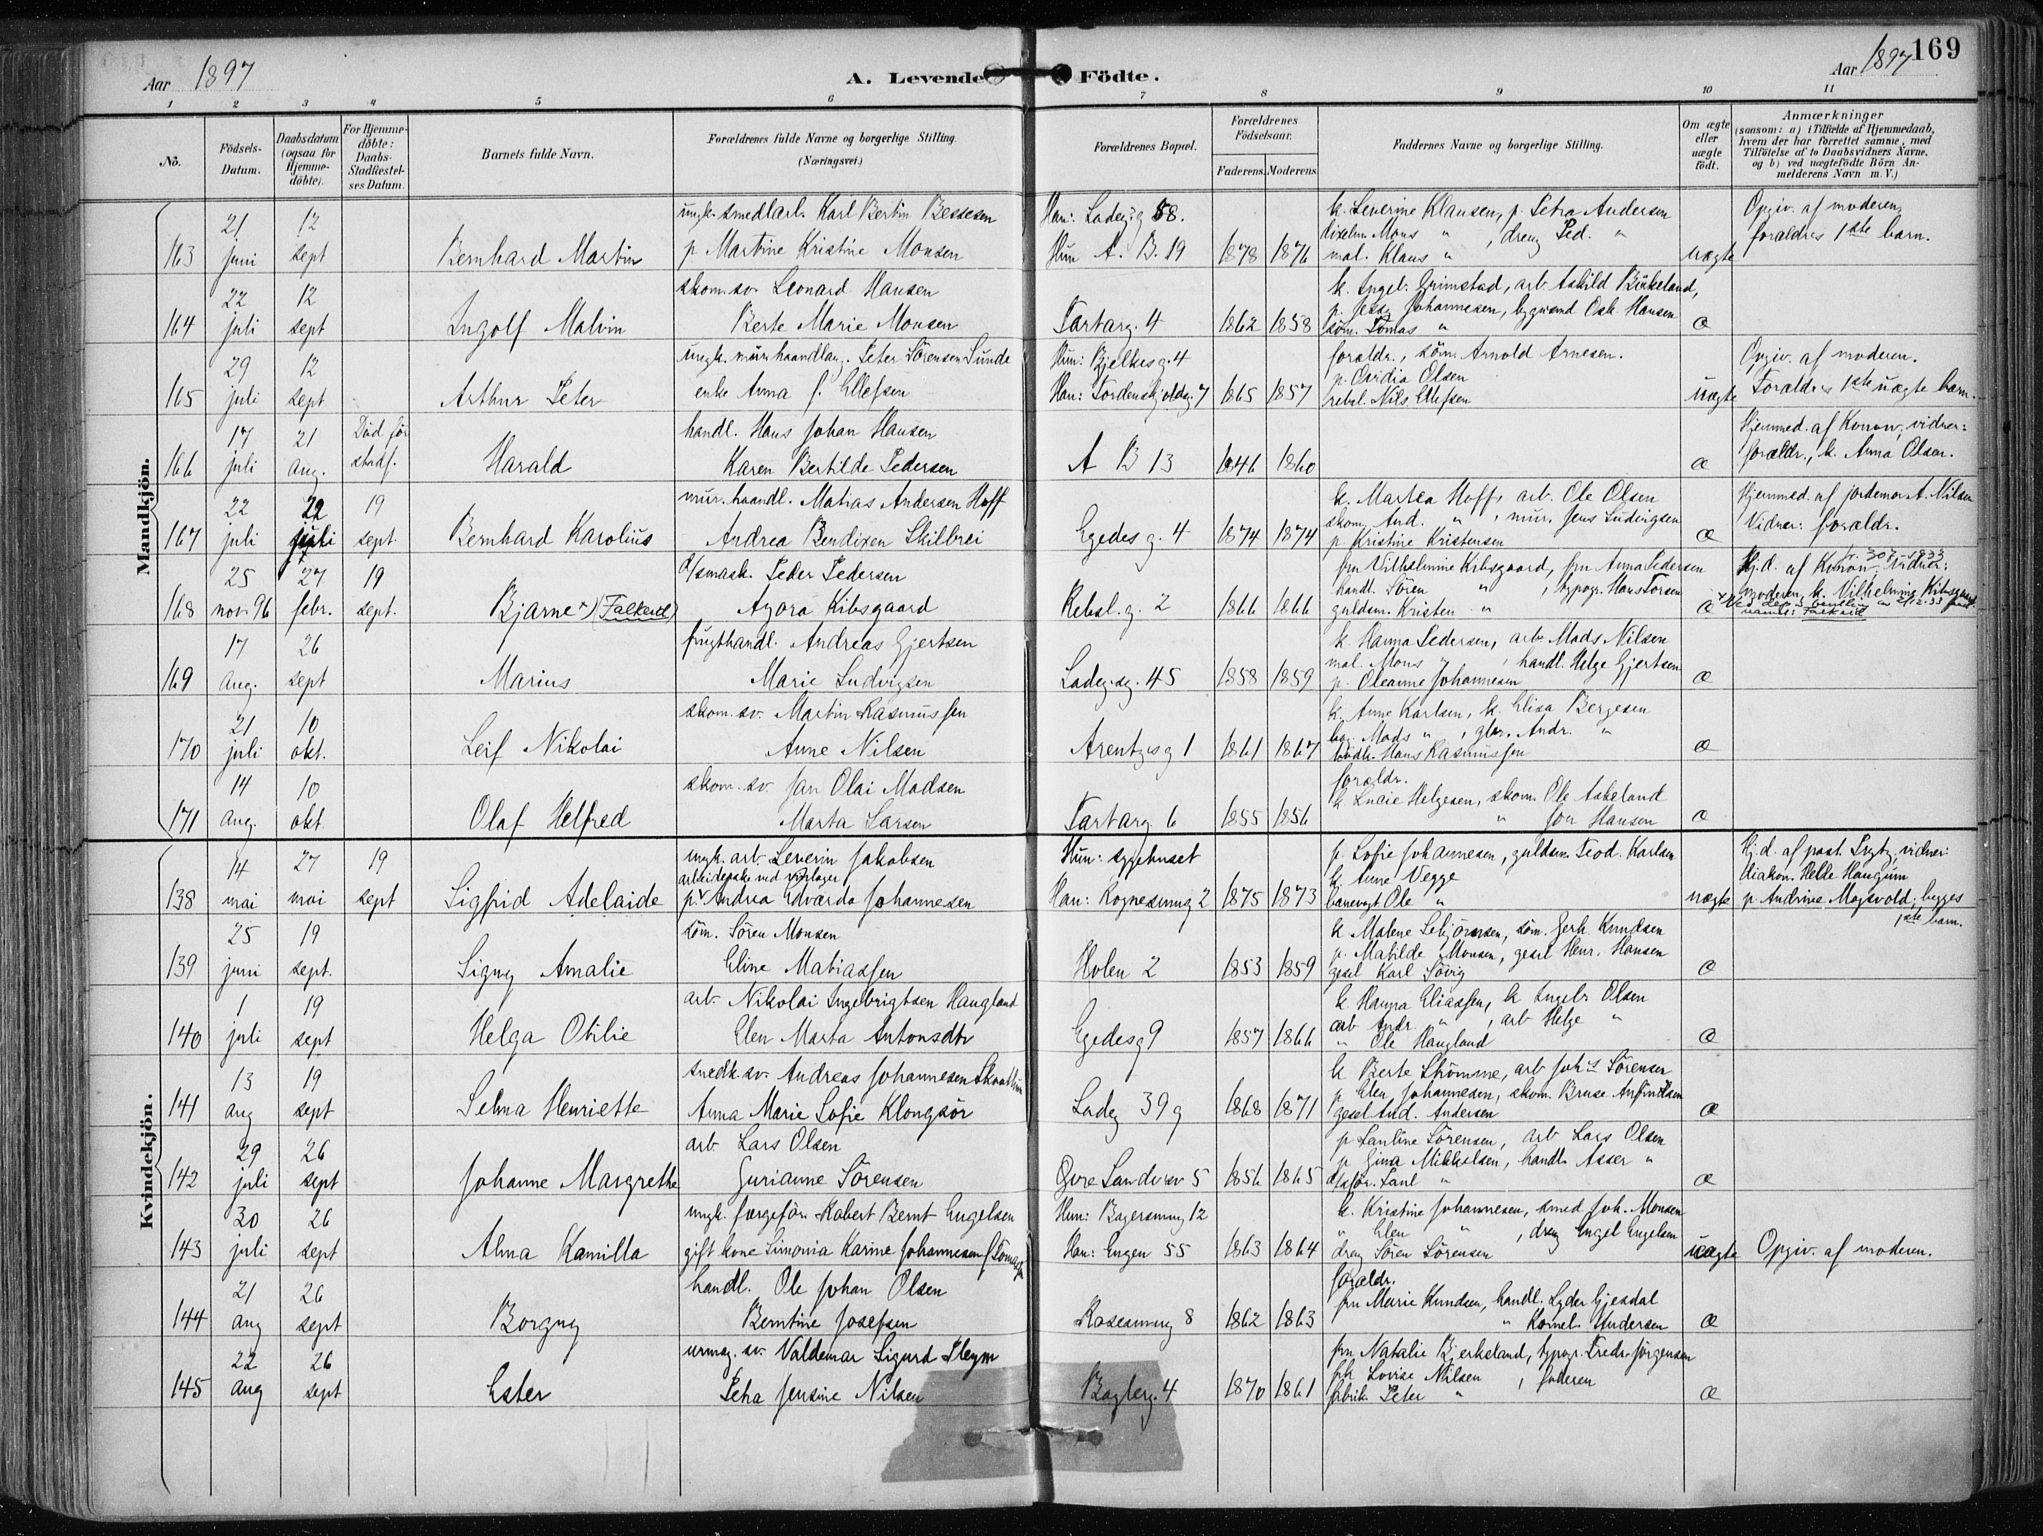 169
Aar 1897
A. Levende Födte.
Aar 1897
1 2 3 4 5 6 7 8 9 10 11
No.
Födsels-Datum.
Daabsdatum (ogsaa for Hjemme-döbte).
For Hjemme-döbte: Daabs-Stadfæstel-ses Datum.
Barnets fulde Navn.
Forældrenes fulde Navne og borgerlige Stilling. (Næringsvei.)
Forældrenes Bopæl.
Forældrenes Födselsaar.
Faderens. Moderens.
Faddernes Navne og borgerlige Stilling.
Om ægte eller uægte födt.
Anmærkninger
(saasom: a) i Tilfælde af Hjemmedaab, hvem der har forrettet samme, med Tilföielse af to Daabsvidners Navne, og b) ved uægtefödte Börn An-melderens Navn m. V.)
Mandkjön.
163 21 juni 12 sept Bernhard Martin
ungk. smedlarl. Karl Bertin Bessesen
p. Martine Kristine Monsen
Han: Ladeg.g 58.
Hun A. B. 19 1878 1876
k. Severine Klausen, p. Petra Andersen
Mons " , dreng Ped. "
mal. Klaus " uægte
Opgiv. af moderen,
forældres 1ste barn.
164 22 juli 12 sept Ingolf Malvin
skom. sv. Leonard Hansen
Berte Marie Monsen
Tartarg. 4 1862 1858
k. Ingeb. Grimstad, arb. Askild Birkeland,
p. Johannesen, bygmand Osk. Hansen
söm. Tomas " æ
165 29 juli 12 sept Arthur Peter
ungk. murhaandlang. Peter Sörensen Sunde
enke Anna f. Ellefsen
Hun: Bjelkesg. 4
Han: Tordenskjoldsg. 7 1865 1857
forældr., söm. Arnold Arnesen.
p. Ovidia Olsen
rebsl. Nils Ellefsen uægte
Opgiv. af moderen.
Forældres 1ste uægte barn.
166 17 juli 21 aug. Död för stadf. Harald
handl. Hans Johan Hansen
Karen Bertilde Pedersen
A B 13 1846 1860 æ
Hjemmed. af Konow, vidner:
forældr., k. Anna Olsen.
167 22 juli 22 juli 19 sept. Bernhard Karolius
mur. haandl. Matias Andersen Hoff
Andrea Bendixen Skilbrei
Egedes g. 4 1874 1874
k. Martea Hoff, arb. Ole Olsen
skom. And. " , mur. Jens Ludvigsen
p. Kristine Kristensen æ
Hjemmed. af jordemor A. Nilsen
Vidner: forældr.
168 25 nov. 96 27 febr. 19 sept. Bjarne x) (Falkeid)
D/smask. Peder Pedersen
Agora Kibsgaard
Rebsl. g. 2 1866 1866
fru Vilhelmine Kibsgaard, frn Anna Pedersen
handl. Sören " , typogr. Hans Torsen
guldsm. Kristen " æ
Hj.d. af Konow, Vidner:
moderen, k. Vilhelmine Kibsgaard
169 17 aug. 26 sept Marius
frugthandl. Andreas Gjertsen
Marie Ludvigsen
Ladeg.sg. 45 1858 1859
k. Hanna Pedersen, arb. Mads Nilsen
mal. Mons " , handl. Helge Gjertsen
p. Oleanne Johannesen æ
170 21 juli 10 okt. Leif Nikolai
skom. sv. Martin Rasmussen
Anne Nilsen
Arentzesg 1 1861 1867
k. Anne Karlsen, k. Elisa Bergesen
Mads " , Andr. "
Hans Rasmussen æ
171 14 aug. 10 okt. Olaf Helfred
skom. sv. Jan Olai Madsen
Marta Larsen
Tartarg. 6 1855 1856
forældr.
k. Lucie Helgesen, skom. Ole Askeland
" Hansen æ
Kvindekjön.
138 14 mai 27 mai 19 sept Sigfrid Adelaide
ungk. arb. Severin Jakobsen
p. Andrea Edvarda Johannesen
Hun: sygehuset
Han: Rognesmug 2 1875 1873
p. Sofie Johannesen, guldsm. Teod. Karlsen
k. Anne Vegge
banevogt Ole " uægte
Hj.d. af past. vidner:
diakon. Helde Haugum
p. Andrine Mogsvold, begges
1ste barn.
139 25 juni 19 sept. Signy Amalie
söm. Sören Monsen
Eline Matiassen
Holen 2 1853 1859
k. Malene Schjörnsen, söm. Gerh. Knudsen
p. Matilde Monsen, gesel Henr. Hansen
gesel Karl Sövig æ
140 1 juli 19 sept Helga Otilie
arb. Nikolai Ingebrigtsen Haugland
Elen Marta Antonsdtr
Egedesg 9 1857 1866
k. Hanna Eliassen, k Ingeb. Olsen
arb. Andr. " , arb Helge "
" Ole Haugland æ
141 13 aug 19 sept Selma Henriette
snedk. sv. Andreas Johannesen
Anna Marie Sofie Klongsör
Ladeg 39 g 1868 1871
k Berte Strömme, arb Johs Sörensen
p. Elen Johannesen, skom. Bruse Anfindsen
gesel And. Andersen æ
142 29 juli 26 sept Johanne Margrethe
arb. Lars Olsen
Gurianne Sörensen
Øvre Sandvsv 5 1856 1865
p Pauline Sörensen, arb Lars Olsen
p Gina Mikkelsen, handl. Asser "
Paul " æ
143 30 juli 26 sept Alma Kamilla
ungk. færgeför. Robert Bernt Engelsen
gift kone Simonia Karine Johannesen f. Tomassen
Hun: Bagersmug 12
Han: Engen 55 1863 1864
k. Kristine Johannesen, smed Joh. Monsen
" Elen " , dreng Engel Engelsen
dreng Sören Sörensen uægte
Opgiv. af moderen.
144 21 aug 26 sept Borgny
handl. Ole Johan Olsen
Berntine Josefsen
Rosesmug 8 1862 1863
forældr.
fru Marie Knudsen, handl. Lyder Gjesdal
" Kornel. Andersen æ
145 22 aug 26 sept Ester
urmag. sv. Valdemar Sigurd Heym
Petra Jensine Nilsen
Bagterg. 4 1870 1861
fru Natalie Bjerkeland, typogr. Fredr. Jörgensen
frk Lovise Nilsen , faderen
fabrik. Peter " æ